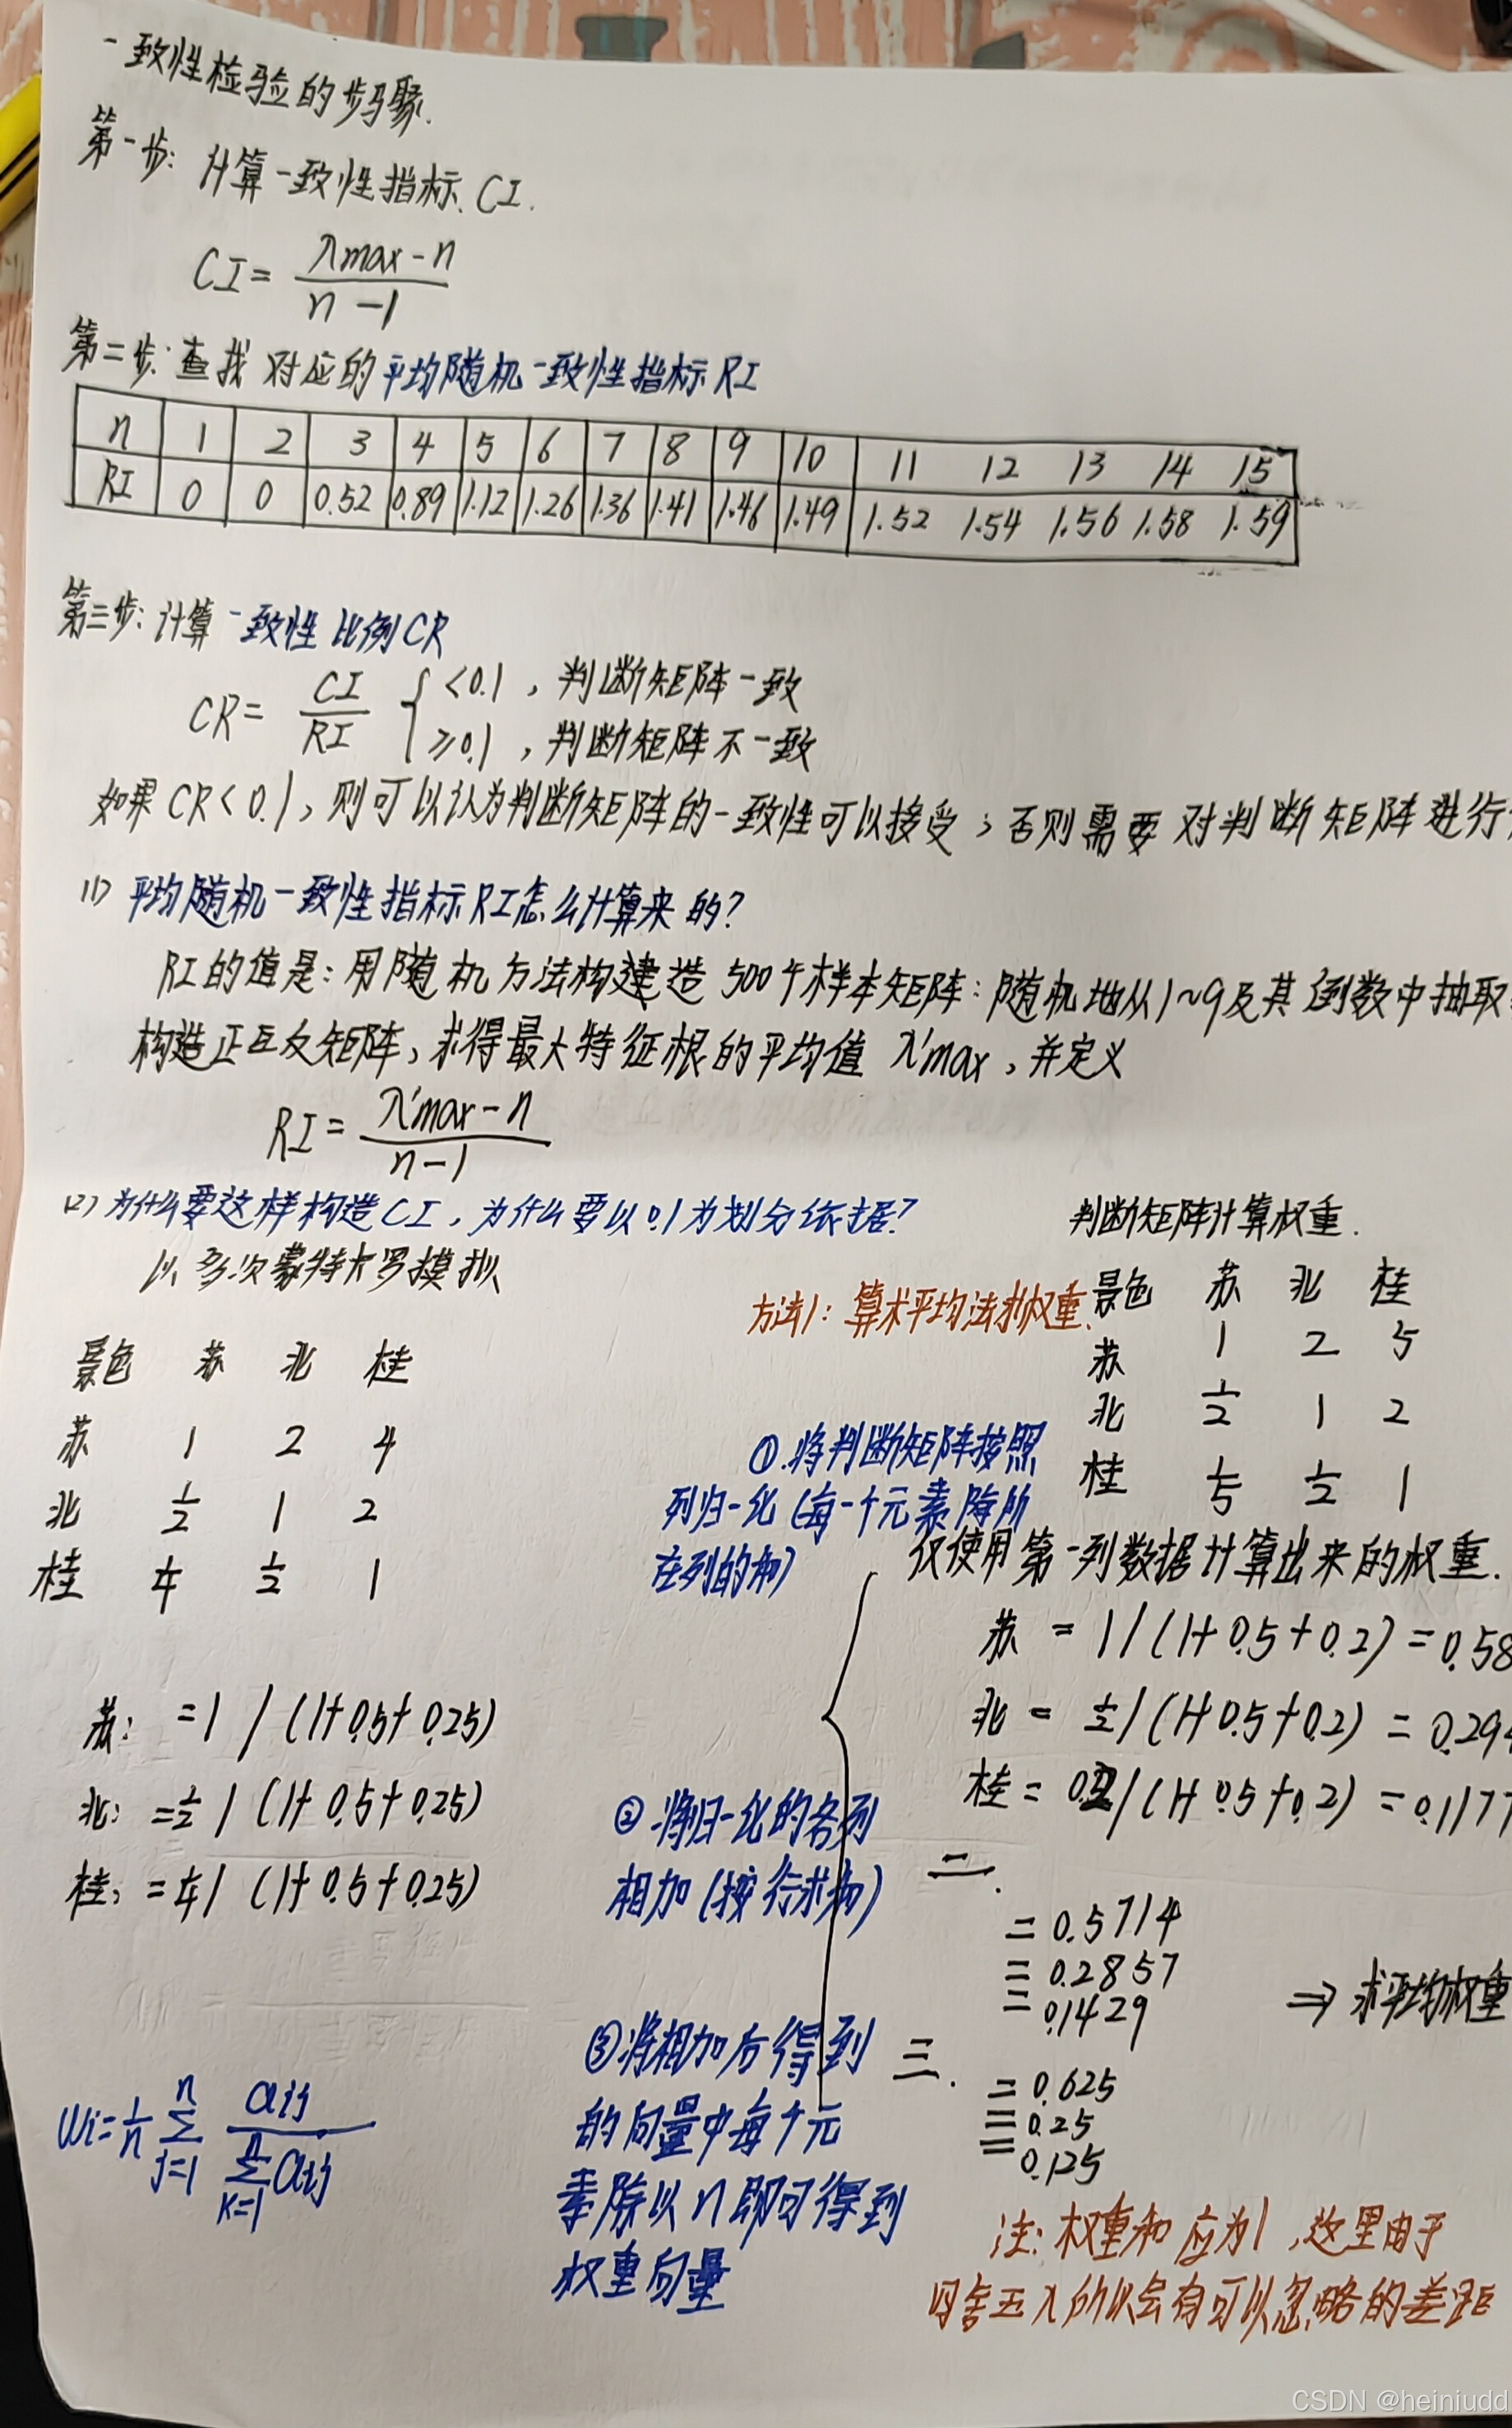 一致性检验的步骤.
第一步: 计算一致性指标 CI.
CI = (λmax - n) / (n - 1)
第二步: 查找对应的平均随机一致性指标 RI
n 1 2 3 4 5 6 7 8 9 10 11 12 13 14 15
RI 0 0 0.52 0.89 1.12 1.26 1.36 1.41 1.46 1.49 1.52 1.54 1.56 1.58 1.59
第三步: 计算一致性比例 CR
CR = CI / RI { <0.1, 判断矩阵一致
≥0.1, 判断矩阵不一致
如果 CR < 0.1, 则可以认为判断矩阵的一致性可以接受; 否则需要对判断矩阵进行
(1) 平均随机一致性指标 RI 怎么计算来的?
RI 的值是: 用随机方法构建造 500个样本矩阵: 随机地从1~9及其倒数中抽取
构造正互反矩阵, 求得最大特征根的平均值 λ'max, 并定义
RI = (λ'max - n) / (n - 1)
(2) 为什么要这样构造 CI, 为什么要以0.1为划分依据?
以多次蒙特卡罗摸拟
景色 苏 北 桂
苏 1 2 4
北 1/2 1 2
桂 1/4 1/2 1
苏: = 1 / (1+0.5+0.25)
北: = 1/2 / (1+0.5+0.25)
桂: = 1/4 / (1+0.5+0.25)
Wi = 1/n Σ(j=1, n) aij / Σ(k=1, n) aij
判断矩阵计算权重.
方法1: 算术平均法求权重.
景色 苏 北 桂
苏 1 2 5
北 1/2 1 2
桂 1/5 1/2 1
①.将判断矩阵按照
列归一化 (每一个元素除所
在列的和)
②.将归一化的各列
相加 (按行求和)
③将相加后得到
的向量中每个元
素除以 n 即可得到
权重向量
仅使用第一列数据计算出来的权重.
苏 = 1 / (1+0.5+0.2) = 0.58
北 = 1/2 / (1+0.5+0.2) = 0.294
桂 = 0.2 / (1+0.5+0.2) = 0.1177
二.
= 0.5714
= 0.2857
= 0.1429
⇒ 求平均权重
三.
= 0.625
= 0.25
= 0.125
注: 权重和应为1, 这里由于
四舍五入所以会有可以忽略的差距
CSDN @heiniudd